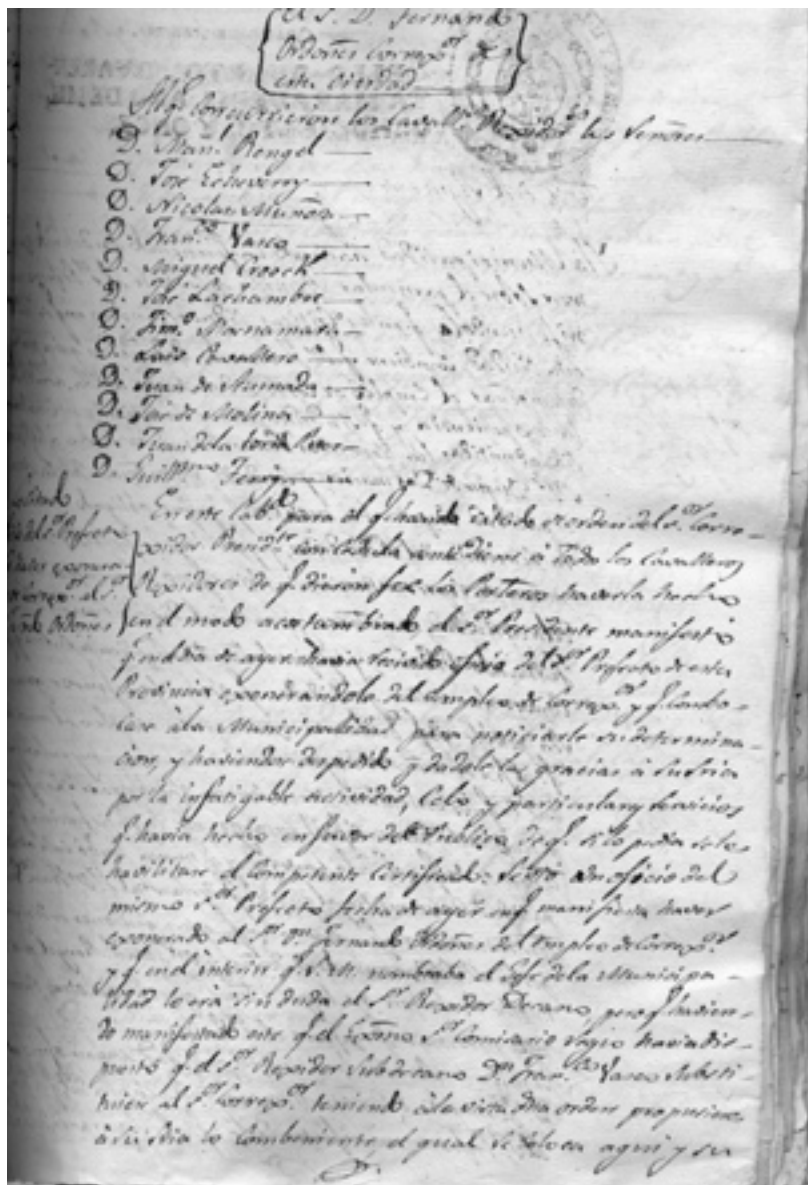 El S. D. Fernando
Ordoñes Correxor. de
esta Ciudad
Al q. concurrieron los Cavallos. Rexidores. los Señores
D. Manl. Rengel
D. José Echeverry
D. Nicolas Muñoz
D. Franco. Vasco
D. Miguel Croock
D. José Lachambre
D. Timo. Macnamara
D. Luis Cavallero
D. Juan de Ahumada
D. José de Molina
D. Juan de la Torre
D. Guillmo. Terry
En este Cabdo. para el q. havia citado de orden del Sor. Corre-
xidor Presidte. con cedula antediem a todos los Cavalleros
Rexidores de q. dieron fee los Porteros haverla hecho
en el modo acostumbrado el Sor. Presidente manifestó
q. en el dia de ayer havia recivido oficio del Sor. Prefecto de esta
Provincia exonerandolo del empleo de Correxor. y q. combo-
case á la Municipalidad para noticiarle su determina-
cion, y haviendose despedido y dadole las gracias á Su Sria
por la infatigable actividad, Celo y particulares servicios
q. havia hecho en favor del Publico de q. si lo pedia se le
havilitase el Competente Certificado: Se vio un oficio del
mismo Sor. Prefecto fecha de ayer en q. manifiesta haver
exonerado al Sor. Dn. Fernando Ordoñes del empleo de Correxor.
y q. en el interin q. S. M. nombraba el Gefe de la Municipa-
lidad lo era sin duda el Sor. Rexidor Decano, pero q. havien-
do manifestado este q. el Excmo Sor. Comisario Regio havia dis-
puesto q. el Sor. Rexidor Subdecano Dn. Franco. Vasco substi-
tuiese al Sor. Correxor. teniendo á la vista dha orden propusiese
á Su Sria lo combeniente, el qual se coloca aqui y su